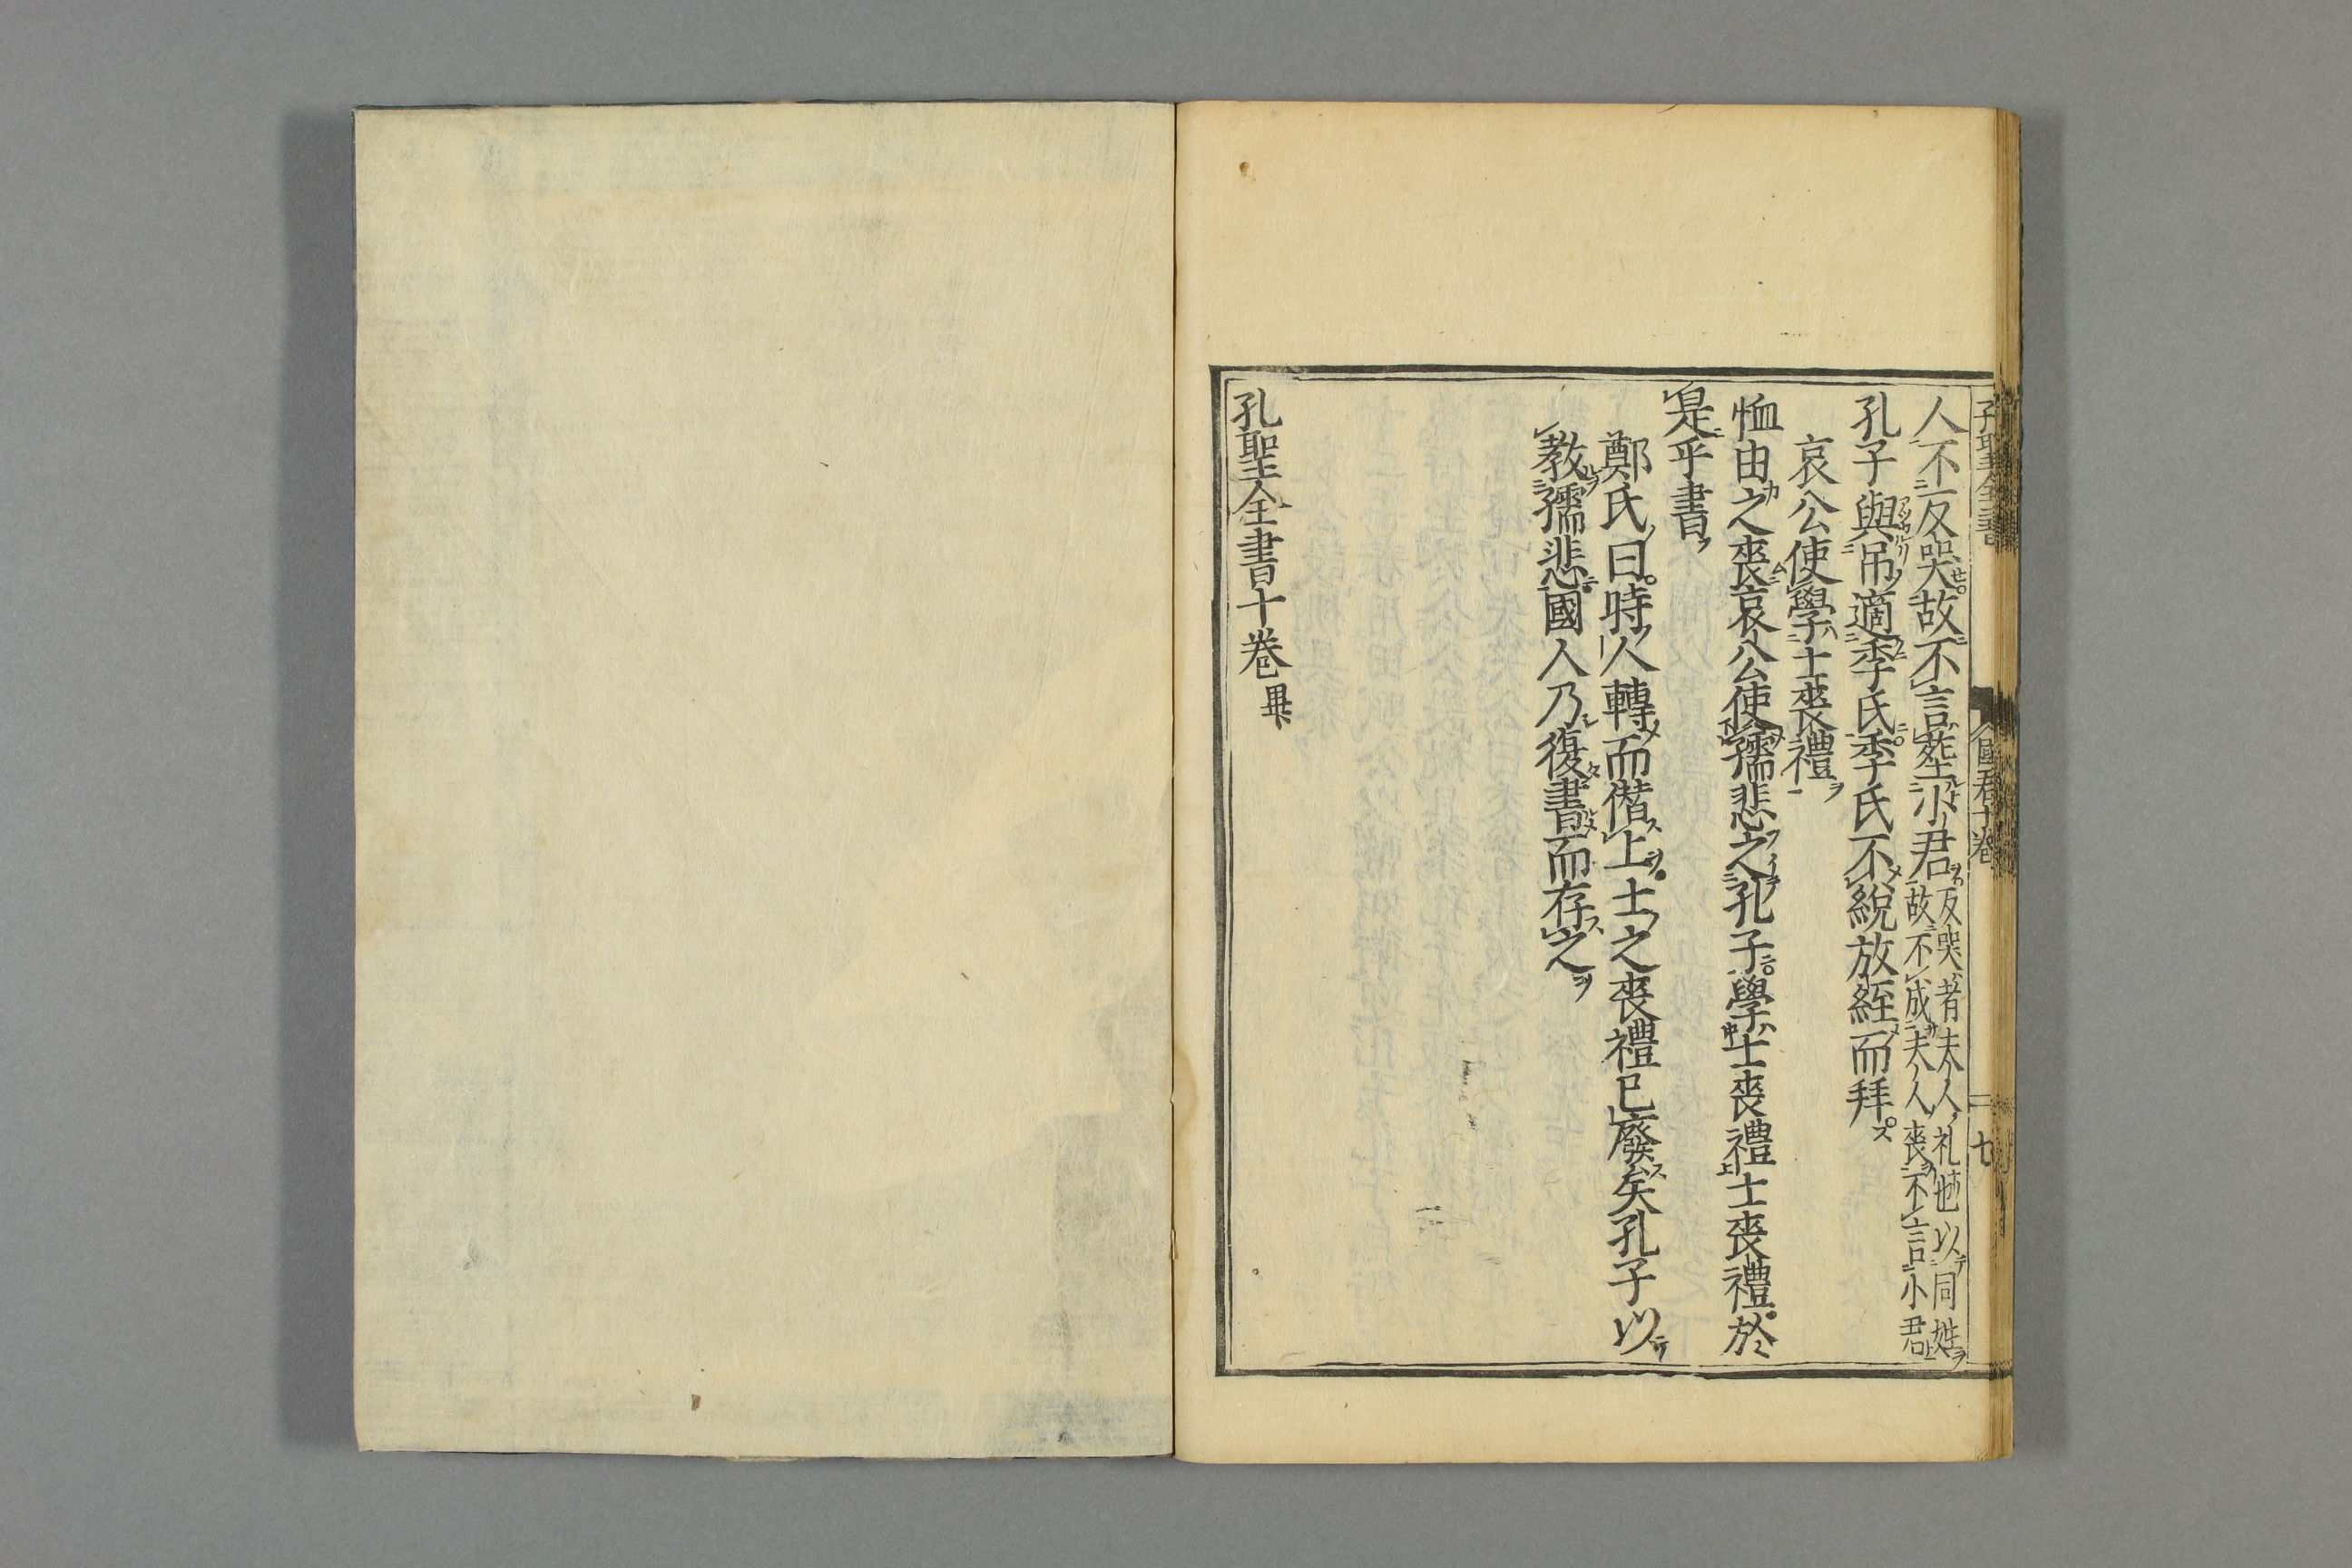 人不反哭故不言葬小君反哭者夫人礼也以同姓
故不成夫人喪不言小君
孔子與吊適季氏季氏不絻放絰而拜
哀公使學士喪禮
恤由之喪哀公使孺悲之孔子學士喪禮士喪禮於
是乎書
鄭氏曰時人轉而僭上士之喪禮已廢矣孔子以
教孺悲國人乃復書而存之
孔聖全書十卷畢